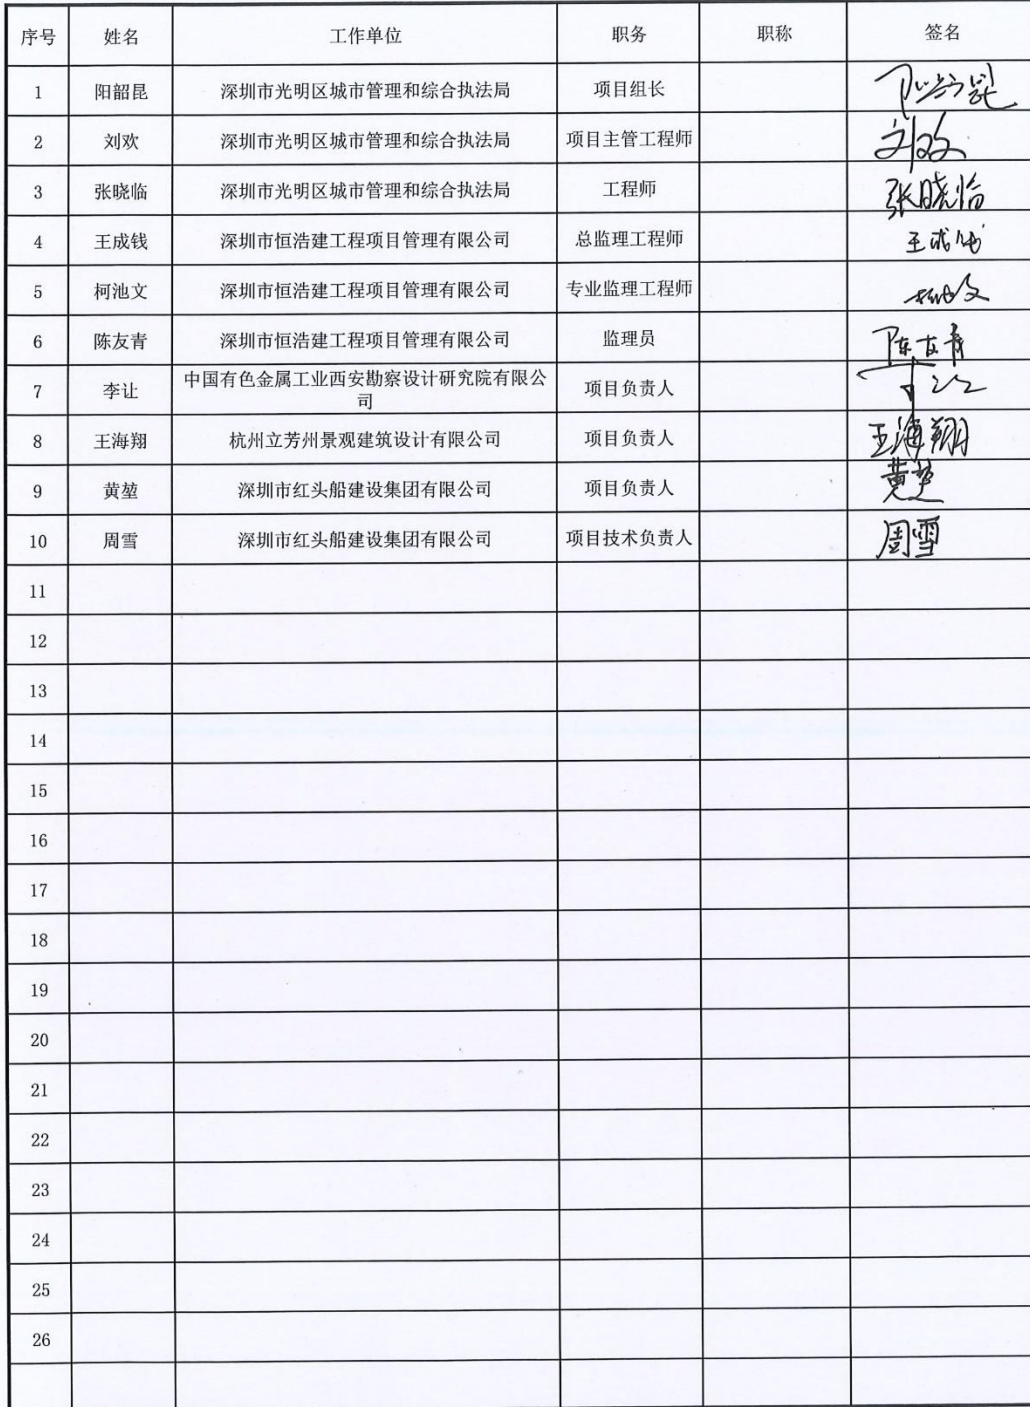 序号 姓名 工作单位 职务 职称 签名
1 阳韶昆 深圳市光明区城市管理和综合执法局 项目组长 阳韶昆
2 刘欢 深圳市光明区城市管理和综合执法局 项目主管工程师 刘欢
3 张晓临 深圳市光明区城市管理和综合执法局 工程师 张晓临
4 王成钱 深圳市恒浩建工程项目管理有限公司 总监理工程师 王成钱
5 柯池文 深圳市恒浩建工程项目管理有限公司 专业监理工程师 柯池文
6 陈友青 深圳市恒浩建工程项目管理有限公司 监理员 陈友青
7 李让 中国有色金属工业西安勘察设计研究院有限公
司 项目负责人 李让
8 王海翔 杭州立芳州景观建筑设计有限公司 项目负责人 王海翔
9 黄堃 深圳市红头船建设集团有限公司 项目负责人 黄堃
10 周雪 深圳市红头船建设集团有限公司 项目技术负责人 周雪
11
12
13
14
15
16
17
18
19
20
21
22
23
24
25
26